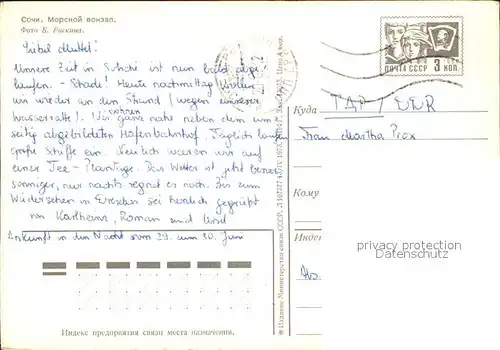 Сочи. Морской вокзал.
Фото Б. Раскина.
Liebe Mutti!
Unsere Zeit in Sotschi ist nun bald abge-
laufen. - Schade! Heute nachmittag wollen
wir wieder an den Strand (wegen unserer
Wasserratte). Wir wohnen ganz nahe neben dem um-
seitig abgebildeten Hafenbahnhof. Täglich laufen
große Schiffe ein. Neulich waren wir auf
einer Tee-Plantage. Das Wetter ist jetzt
sonniger, nur nachts regnet es noch. Bis zum
Wiedersehen in Dresden sei herzlich gegrüßt
von Karlheinz, Roman und
Ankunft in der Nacht vom 29. zum 30. Juni
Индекс предприятия связи места назначения.
© Издание Министерства связи СССР.
ПОЧТА СССР 3 КОП.
Куда
ГДР / DDR
Frau Martha
Кому
Индекс
Abs.
privacy protection
Datenschutz